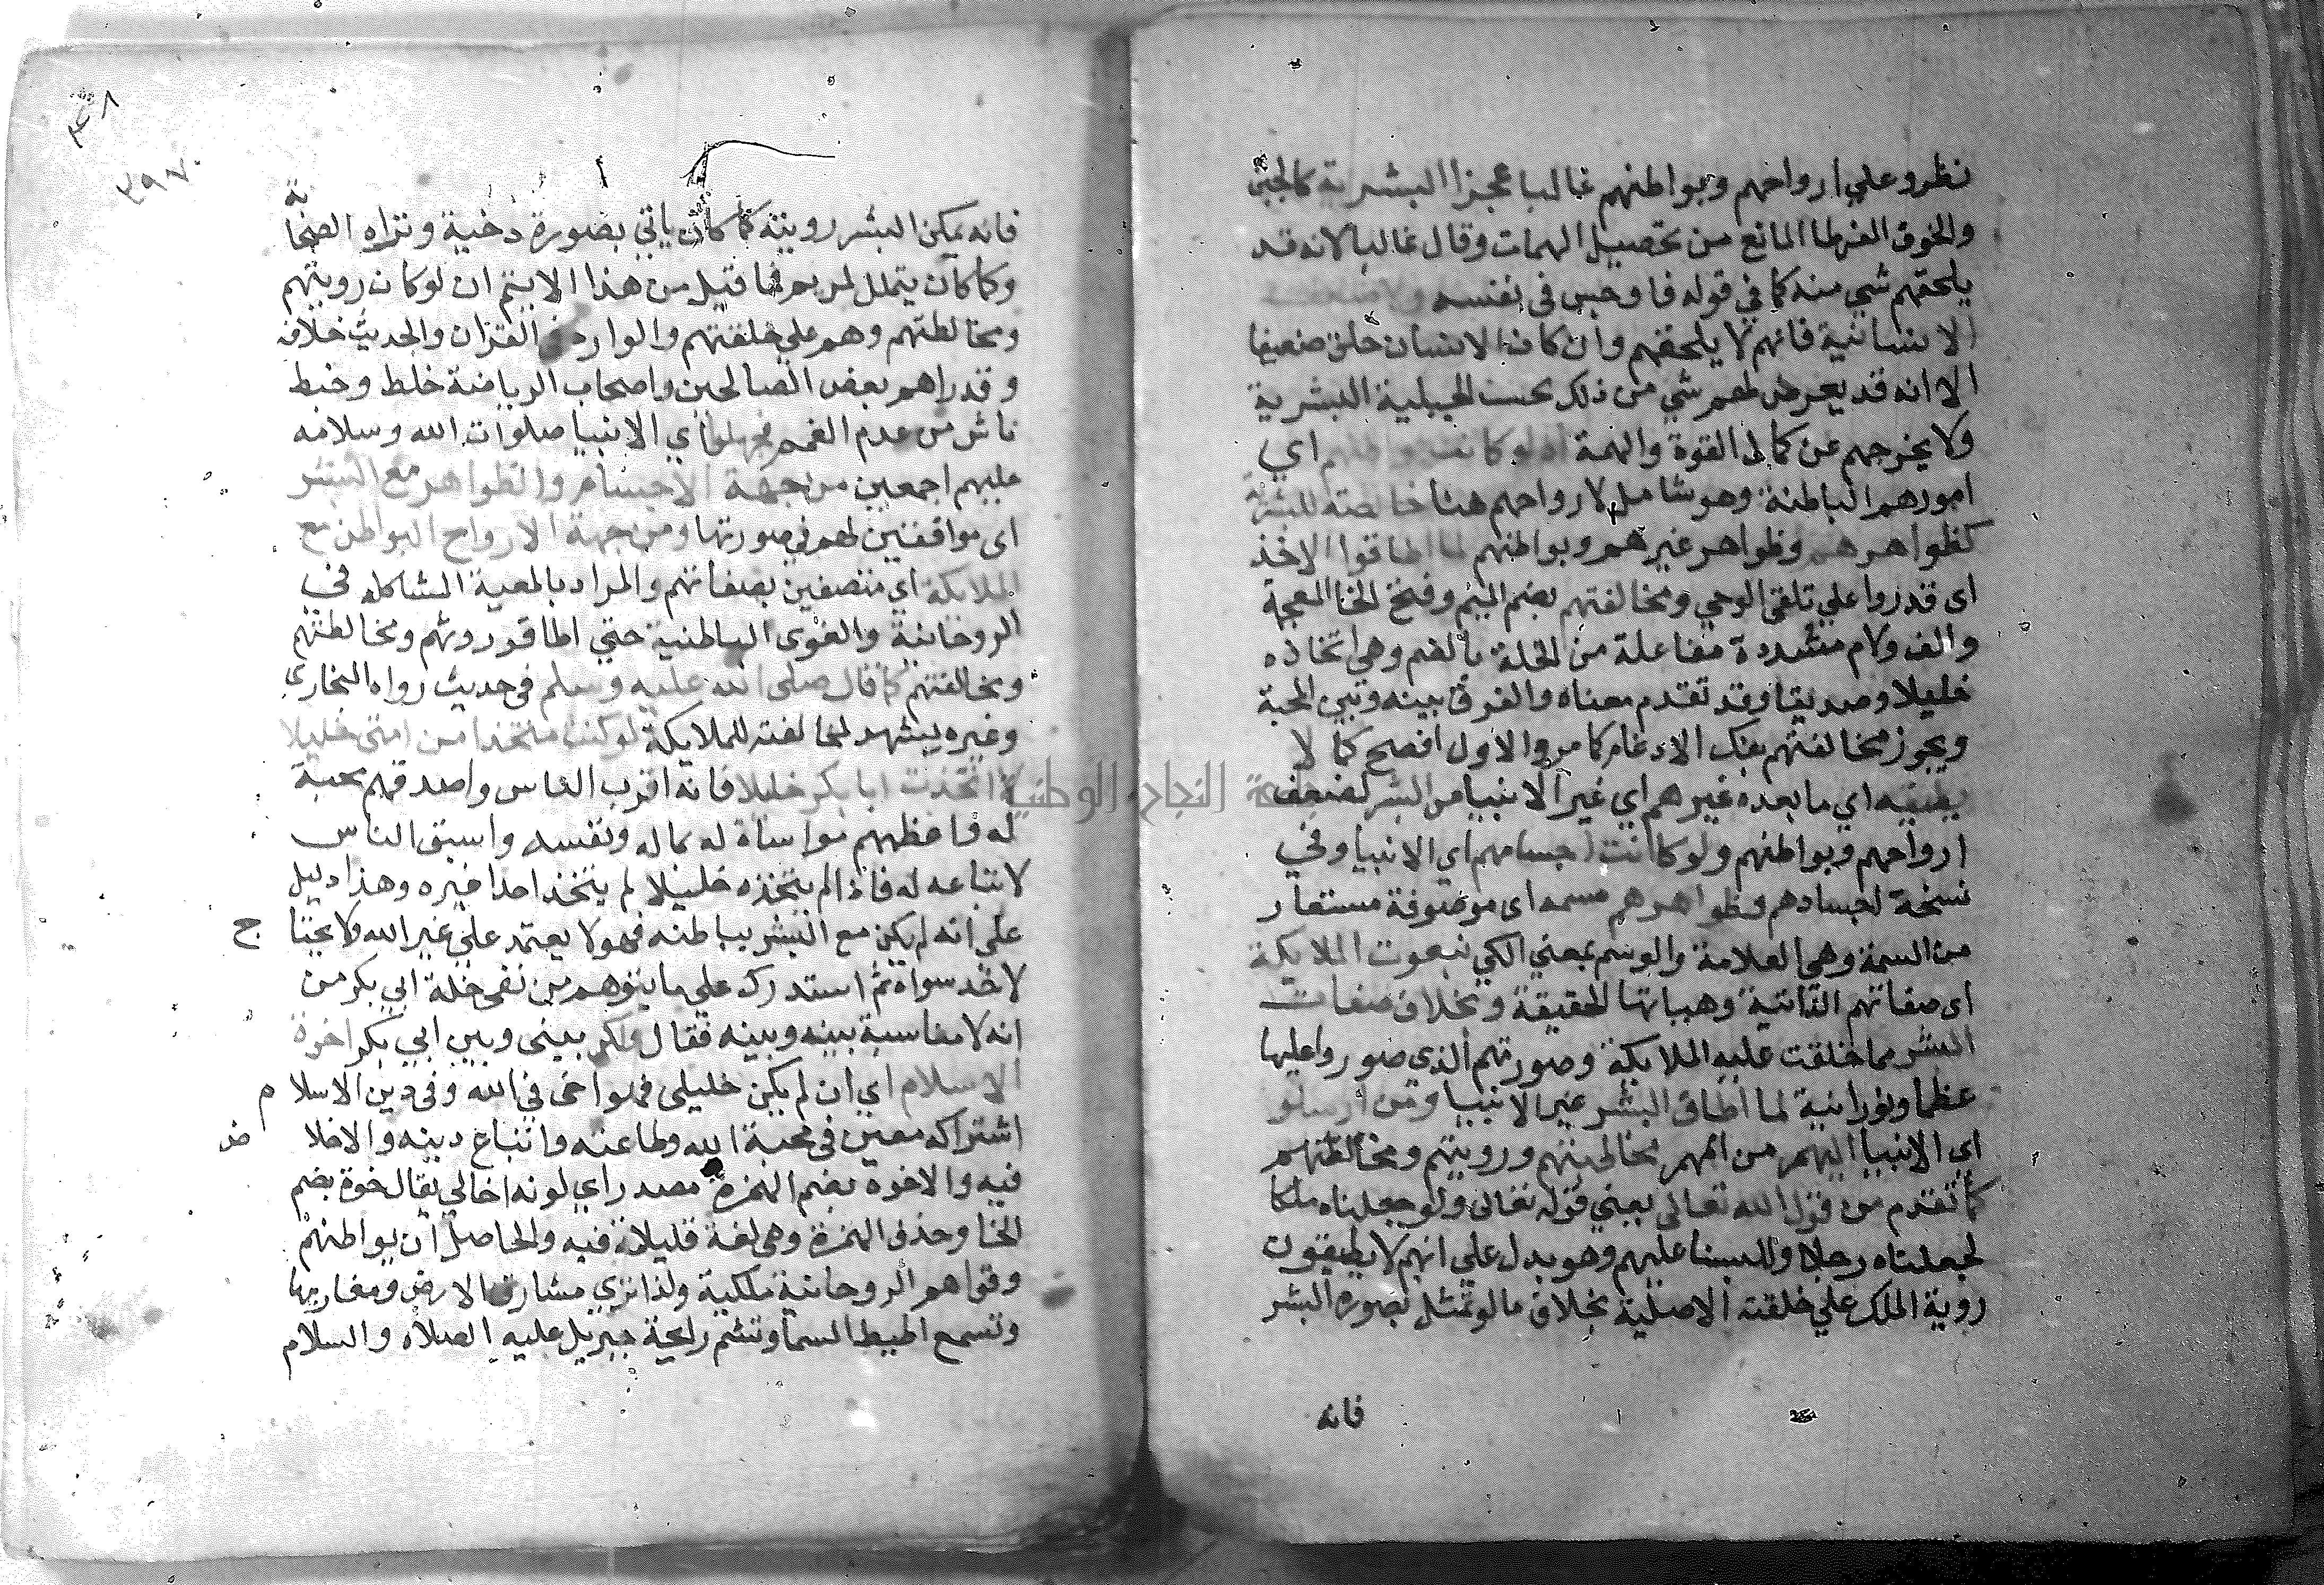 نظرو علي ارواحهم وبواطنهم غالبا عجزا البشرية كالجبن
والخوف المانع من تحصيل المهمات وقال غالبا لانه قد
يلحقهم شي منه كما في قوله فاوجس في نفسه
الانسانية فانهم لا يلحقهم وان كان الانسان خلق ضعيفا
الا انه قد يعرض لهم شي من ذلك بحسب الجبلية البشرية
ولا يخرجهم عن كمال القوة والهمة اذ لو كانت بواطنهم اي
امورهم الباطنة وهو شامل لارواحهم هنا خالصة للبشرية
كظواهرهم وظواهر غيرهم وبواطنهم لما اطاقوا الاخذ
اي قدروا علي تلقي الوحي ومخالفتهم بضم الميم وفتح الخا المعجمة
والف ولام مشددة مفاعلة من الخلة بالضم وهي اتخاذه
خليلا وصديقا وقد تقدم معناه والفرق بينه وبين المحبة
ويجوز مخالفتهم بفك الادغام كما مر والاول افصح كما لا
يطيقه اي ما بعده غيرهم اي غير الانبيا من البشر لضعف
ارواحهم وبواطنهم ولو كانت اجسامهم اي الانبيا وفي
نسخة اجسادهم وظواهرهم مسمه اي موصوفة مستعار
من السمة وهي العلامة والوسم بمعني الكي نبعوت الملايكة
اي صفاتهم الذاتية وهيباتها الحقيقة وبخلاف صفات
البشر مما خلقت عليه الملايكة وصورتهم الذي صوروا عليها
عظما ونورانية لما اطاق البشر غير الانبيا ومن ارسلو
اي الانبيا اليهم من اممهم مخالطتهم ورويتهم ومخالفتهم
كما تقدم من قول الله تعالي يعني قوله تعالي ولو جعلناه ملكا
لجعلناه رجلا وللبسنا عليهم وهو يدل علي انهم لا يطيقون
روية الملك علي خلقته الاصلية بخلاف ما لو تمثل بصورة البشر
فانه
٣٩٧
فانه يمكن البشر رويته كما كان ياتي بصورة دخية وتراه الصحابة
وكما كان يتملل لمريم فما قيل من هذا لا يتم ان لو كان رويتهم
ومخالطتهم وهم علي خلقتهم والوارد في القران والحديث خلافه
وقد راهم بعض الصالحين واصحاب الرياضة خلط وخبط
ناش من عدم الفهم اي الانبيا صلوات الله وسلامه
عليهم اجمعين من جهة الاجسام والظواهر مع البشر
اي موافقين لهم في صورتها ومن جهة الارواح البواطن مع
الملايكة اي متصفين بصفاتهم والمراد بالمعية المشاكله في
الروحانية والقوي الباطنية حتي اطاقو رويتهم ومخالطتهم
ومخالفتهم كما قال صلي الله عليه وسلم في حديث رواه البخاري
وغيره يشهد لمخالفته للملايكة لو كنت متخذا من امتي خليلا
لاتخذت ابا بكر خليلا فانه اقرب الناس واصدقهم محبة
له واعظمهم مواساة له بماله ونفسه واسبق الناس
لاتباعه له فاذا لم يتخذه خليلا لم يتخذ احدا غيره وهذا دليل
علي انه لم يكن مع البشر بباطنه فهو لا يعتمد علي غير الله ولا يحتاج
لاخد سواه ثم استدرك علي ما يتوهم من نفي خلة ابي بكر من
انه لا مناسبة بينه وبينه فقال ولكن بيني وبين ابي بكر اخوة
الاسلام اي ان لم يكن خليلي فهو اخي في الله وفي دين الاسلام
اشتراكه معين في محبة الله وطاعته واتباع دينه والاخلاص
فيه والاخوة بضم الهمزة مصدر اي لونه اخالي يقال خوة بضم
الخا وحذف الهمزة وهي لغة قليلة فيه والحاصل ان بواطنهم
وقواهم الروحانية ملكية ولذا تري مشارق الارض ومغاربها
وتسمع اطيط السما وتشم رايحة جبريل عليه الصلاة والسلام